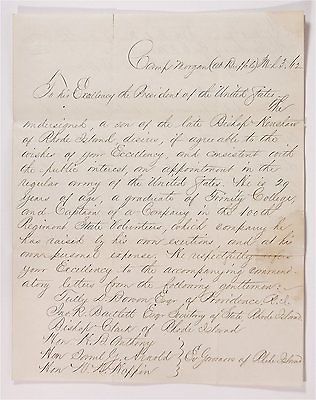 Camp Morgan (at Buffalo) Mch 3. '62
To his Excellency the President of the United States.
The
undersigned, a son of the late Bishop Henshaw
of Rhode Island, desires, if agreeable to the
wishes of your Excellency, and consistent with
the public interest, an appointment in the
regular army of the United States. He is 29
years of age, a graduate of Trinity College,
and Captain of a Company in the 100th
Regiment State Volunteers, which company he
has raised by his own exertions, and at his
own personal expense. He respectfully
your Excellency to the accompanying commend-
atory letters from the following gentlemen:
Tully D. Bowen Esqr of Providence, R.I.
Jno. R. Bartlett Esqr Secretary of State Rhode Island
Bishop Clark of Rhode Island
Hon H. B. Anthony
Hon Saml G. Arnold } Ex Governors of Rhode Island
Hon W. W. Hoppin